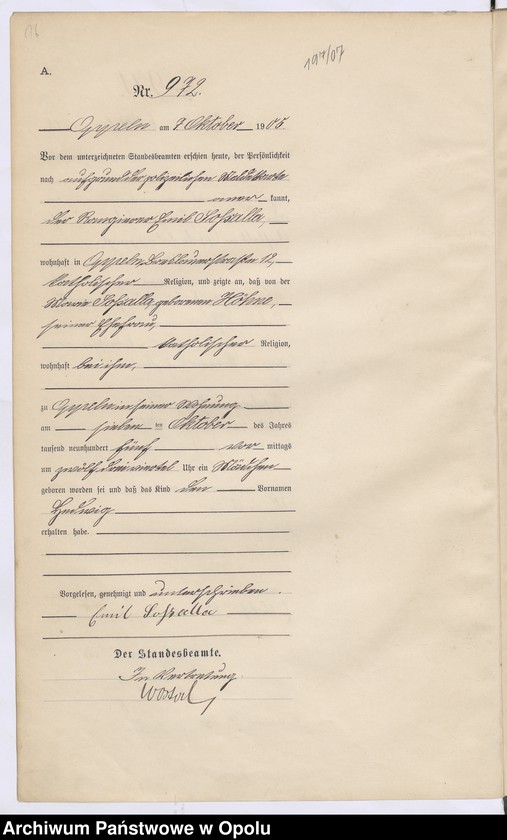 197/07
A.
Nr. 972.
Oppeln am 7. Oktober 1905.
Vor dem unterzeichneten Standesbeamten erschien heute, der Persönlichkeit
nach auf Grund der polizeilichen
aner kannt,
der Rangierer Emil Sossalla,
wohnhaft in Oppeln, 12,
katholischer Religion, und zeigte an, daß von der
Marie Sossalla geborenen Höhne,
seiner Ehefrau,
katholischer Religion,
wohnhaft bei ihm,
zu Oppeln in seiner Wohnung
am sieben ten Oktober des Jahres
tausend neunhundert fünf vor mittags
um zwölf dreiviertel Uhr ein Mädchen
geboren worden sei und daß das Kind den Vornamen
Hedwig
erhalten habe.
Vorgelesen, genehmigt und unterschrieben.
Emil Sossalla
Der Standesbeamte.
In Vertretung.
Archiwum Państwowe w Opolu